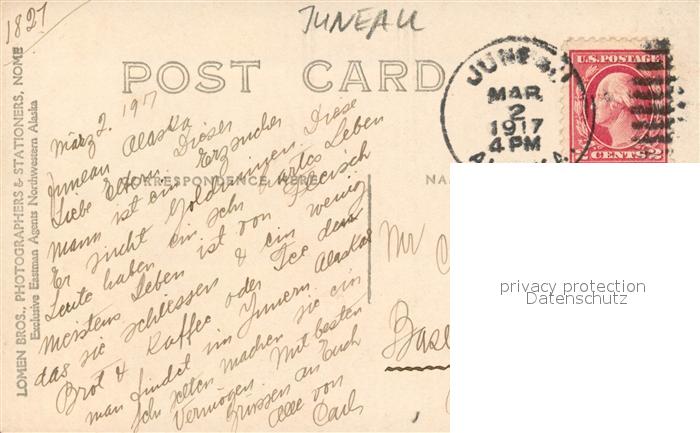 1827
JUNEAU
POST CARD
LOMEN BROS., PHOTOGRAPHERS & STATIONERS, NOME
Exclusive Eastman Agents Northwestern Alaska
CORRESPONDENCE HERE
NA
JUNEAU
MAR
2
1917
4 PM
ALASKA
U.S. POSTAGE
CENTS 2
März 2. 1917
Juneau Alaska
Liebe Eltern. Dieser
Mann ist ein Erzsucher
Er sucht Goldminen. Diese
Leute haben ein sehr hartes Leben
meistens Leben ist von Fleisch
das sie schliessen & ein wenig
Brot & Kaffee oder Tee denn
man findet im Innern Alaskas
selten machen sie ein
Vermögen. Mit besten
Grüssen an Euch
alle von
Carl
Mr
Basel
privacy protection
Datenschutz